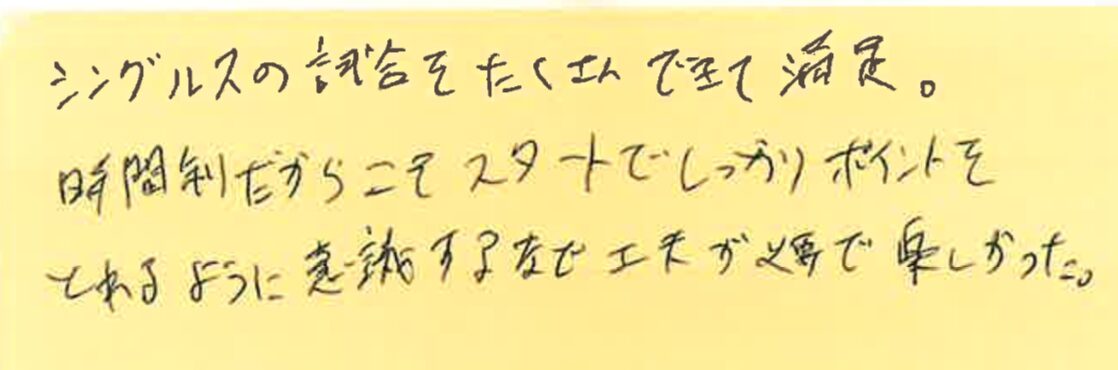 シングルスの試合をたくさんできて満足。
時間制だからこそスタートでしっかりポイントを
とれるように意識するなど工夫が必要で楽しかった。